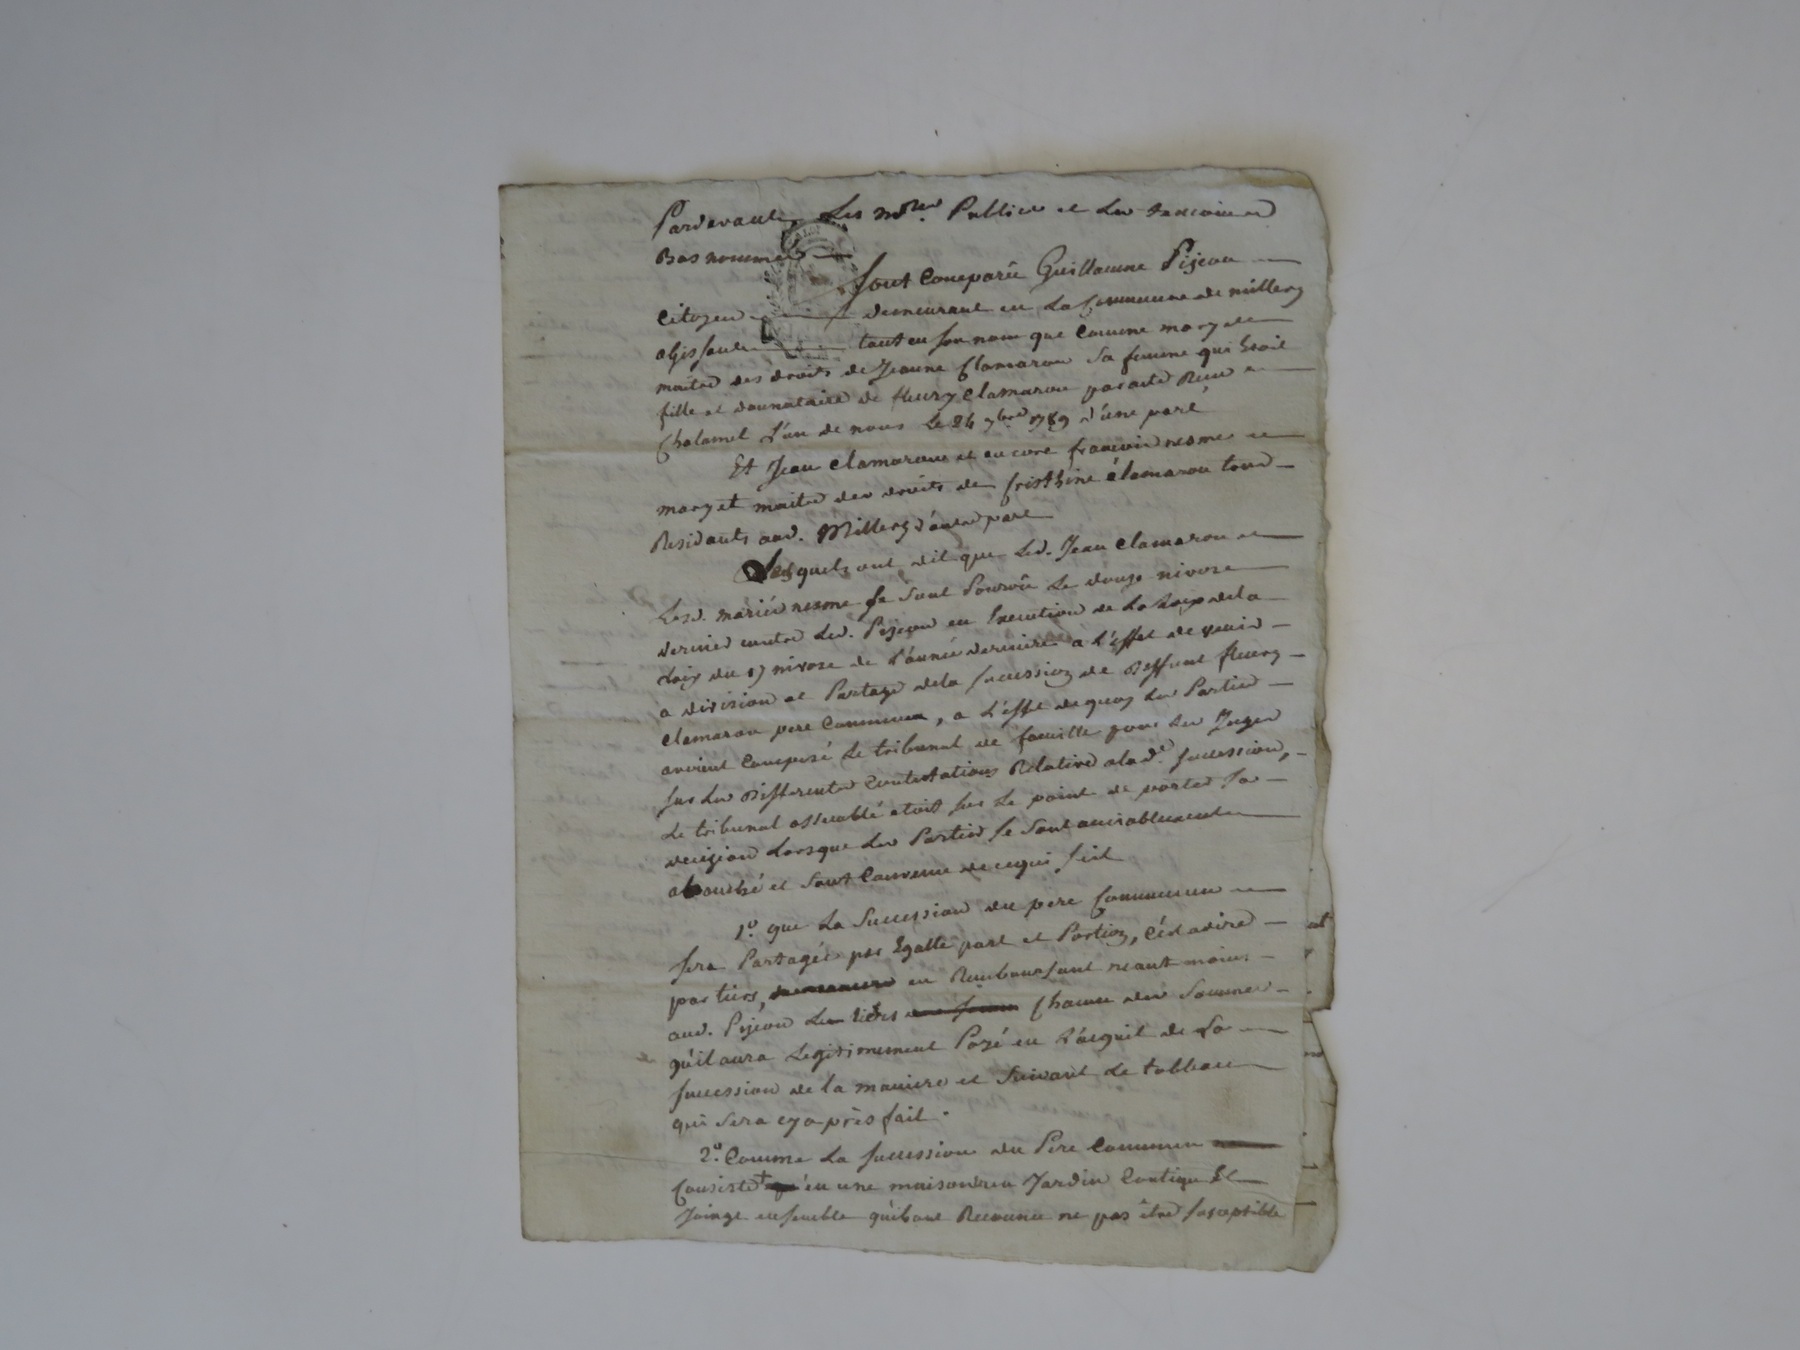 Pardevant Les notres Publics et Les temoins
Bas nommés
Sont Comparu Guillaume Pijeon
Citoyen demeurant en La Commune de millery
agissant tant en son nom que comme mary et
maitre des droits de Jeanne Clamaron Sa femme qui Etoit
fille et donnataire de fleury Clamaron par acte Recu
Chalamel L'un de nous Le 24 7bre 1789 d'une part
Et Jean Clamaron et encore francois nesme
mary et maitre des droits de Clamaron tous
Residants aud. Millery d'autre part
Lesquels ont dit que Led. Jean Clamaron et
Lesd. mariés nesme se Sont Pourvû Le douze nivose
dernier contre Led. Pijeon en Execution de La Loy de la
Loix du 17 nivose de L'année derniere a L'effet de venir
a division et Partage dela succession de deffunt fleury
Clamaron pere Commun, a L'effet de quoy Les Parties
avoient Composé Le tribunal de famille pour Les Juger
sur Les differentes Contestations Relative a lade. succession,
Le tribunal assemblé etoit sur Le point de porter sa
decision Lorsque Les Parties se Sont amiablement
abouché et Sont Convenu de ce qui suit
1o. que La Succession du pere Commun
sera Partagée par Egalle part et Portion, C'est adire
par tiers, en Remboursant neant moins
aud. Pijeon Le tiers Chacun des Sommes
qu'il aura Legitimement Payé en L'acquit de La
succession de la maniere et Suivant Le tableau
qui Sera cy après fait.
2o. Comme La succession du Pere Commun
Consiste en une maison un Jardin Contigu Et
Joinge ensemble qu'ils ont Reconnu ne pas être susceptible